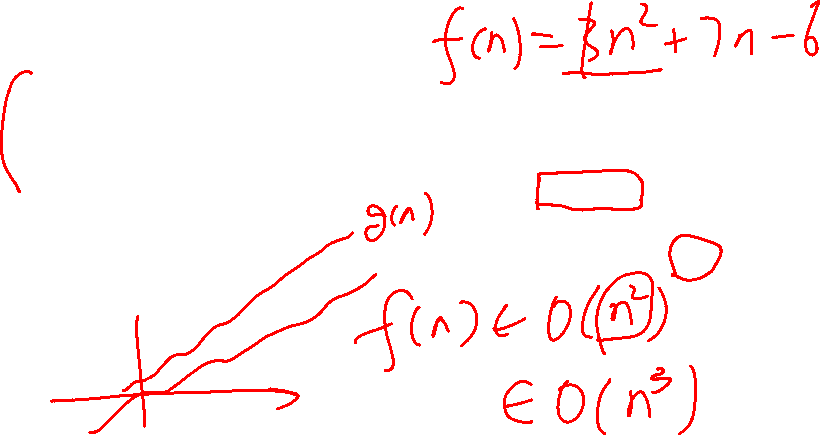 f(n) = 3n² + 7n - 6
g(n)
f(n) ∈ O(n²)
∈ O(n³)